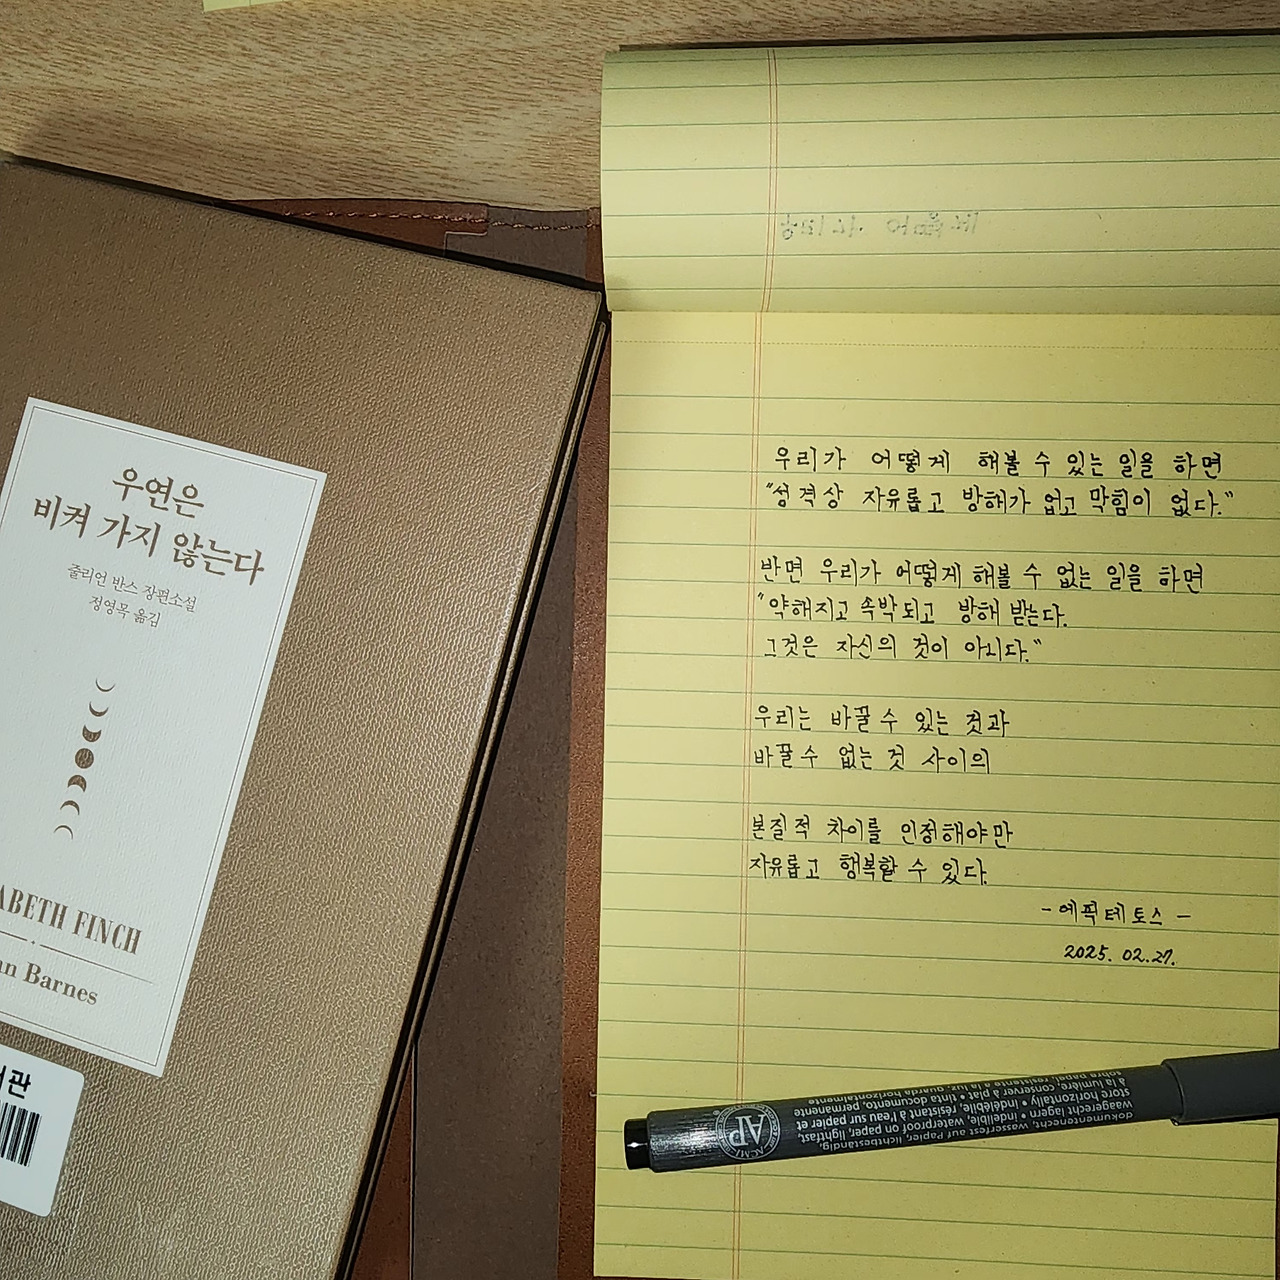 우연은
비켜 가지 않는다
줄리언 반스 장편소설
정영목 옮김
ABETH FINCH
an Barnes
관
우리가 어떻게 해볼 수 있는 일을 하면
"성격상 자유롭고 방해가 없고 막힘이 없다."
반면 우리가 어떻게 해볼 수 없는 일을 하면
"약해지고 속박되고 방해 받는다.
그것은 자신의 것이 아니다."
우리는 바꿀 수 있는 것과
바꿀 수 없는 것 사이의
본질적 차이를 인정해야만
자유롭고 행복할 수 있다.
- 에픽테토스 -
2025. 02. 27.
dokumentenecht, wasserfest auf Papier, lichtbeständig,
waagerecht lagern • indelible, waterproof on paper, lightfast,
store horizontally • indélébile, résistant à l'eau sur papier et
à la lumière, conserver à plat • tinta documento, permanente
sobre papel, resistente a la luz, guarda horizontalmente
AP
ACMI